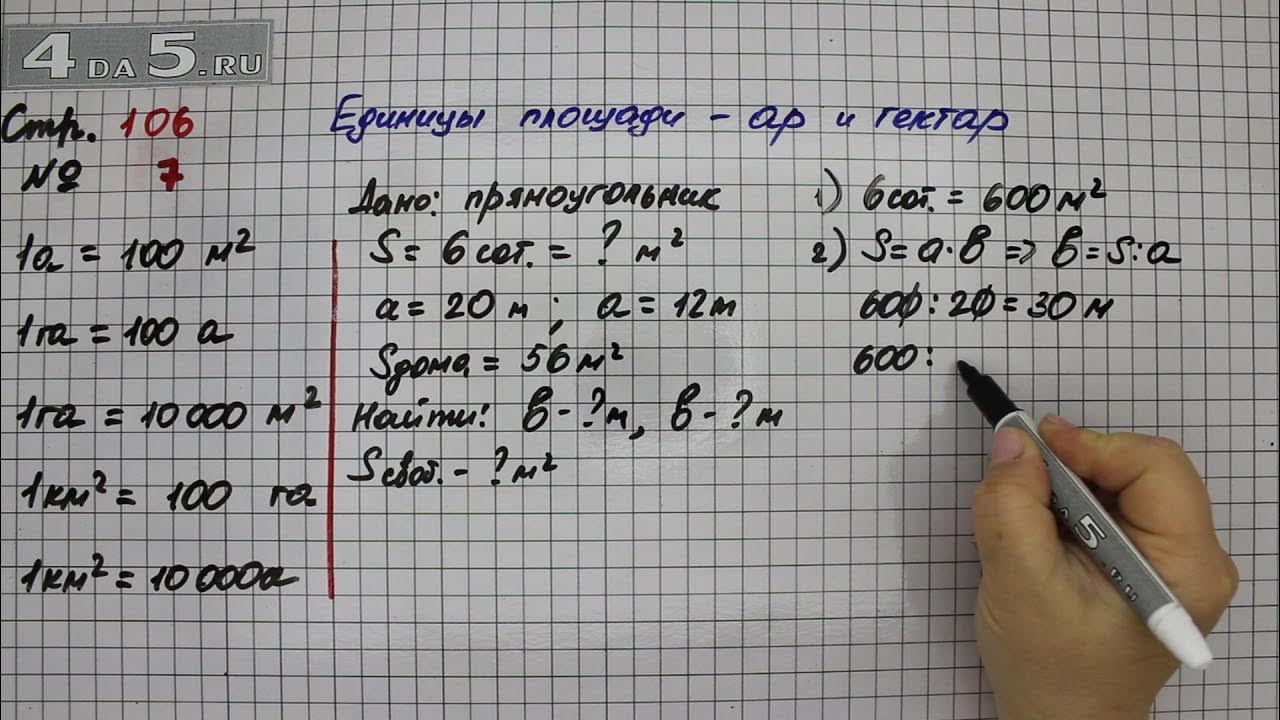 4DA5.RU
Стр. 106
№ 7
Единицы площади - ар и гектар
1а = 100 м²
1га = 100 а
1га = 10 000 м²
1км² = 100 га
1км² = 10 000а
Дано: прямоугольник
S = 6 сот. = ? м²
a = 20 м ; a = 12м
Sдома = 56 м²
Найти: в - ?м, в - ? м
Sсвот. - ? м²
1) 6сот. = 600 м²
2) S = а · в => в = S : а
600 : 20 = 30 м
600 :
5
.RU